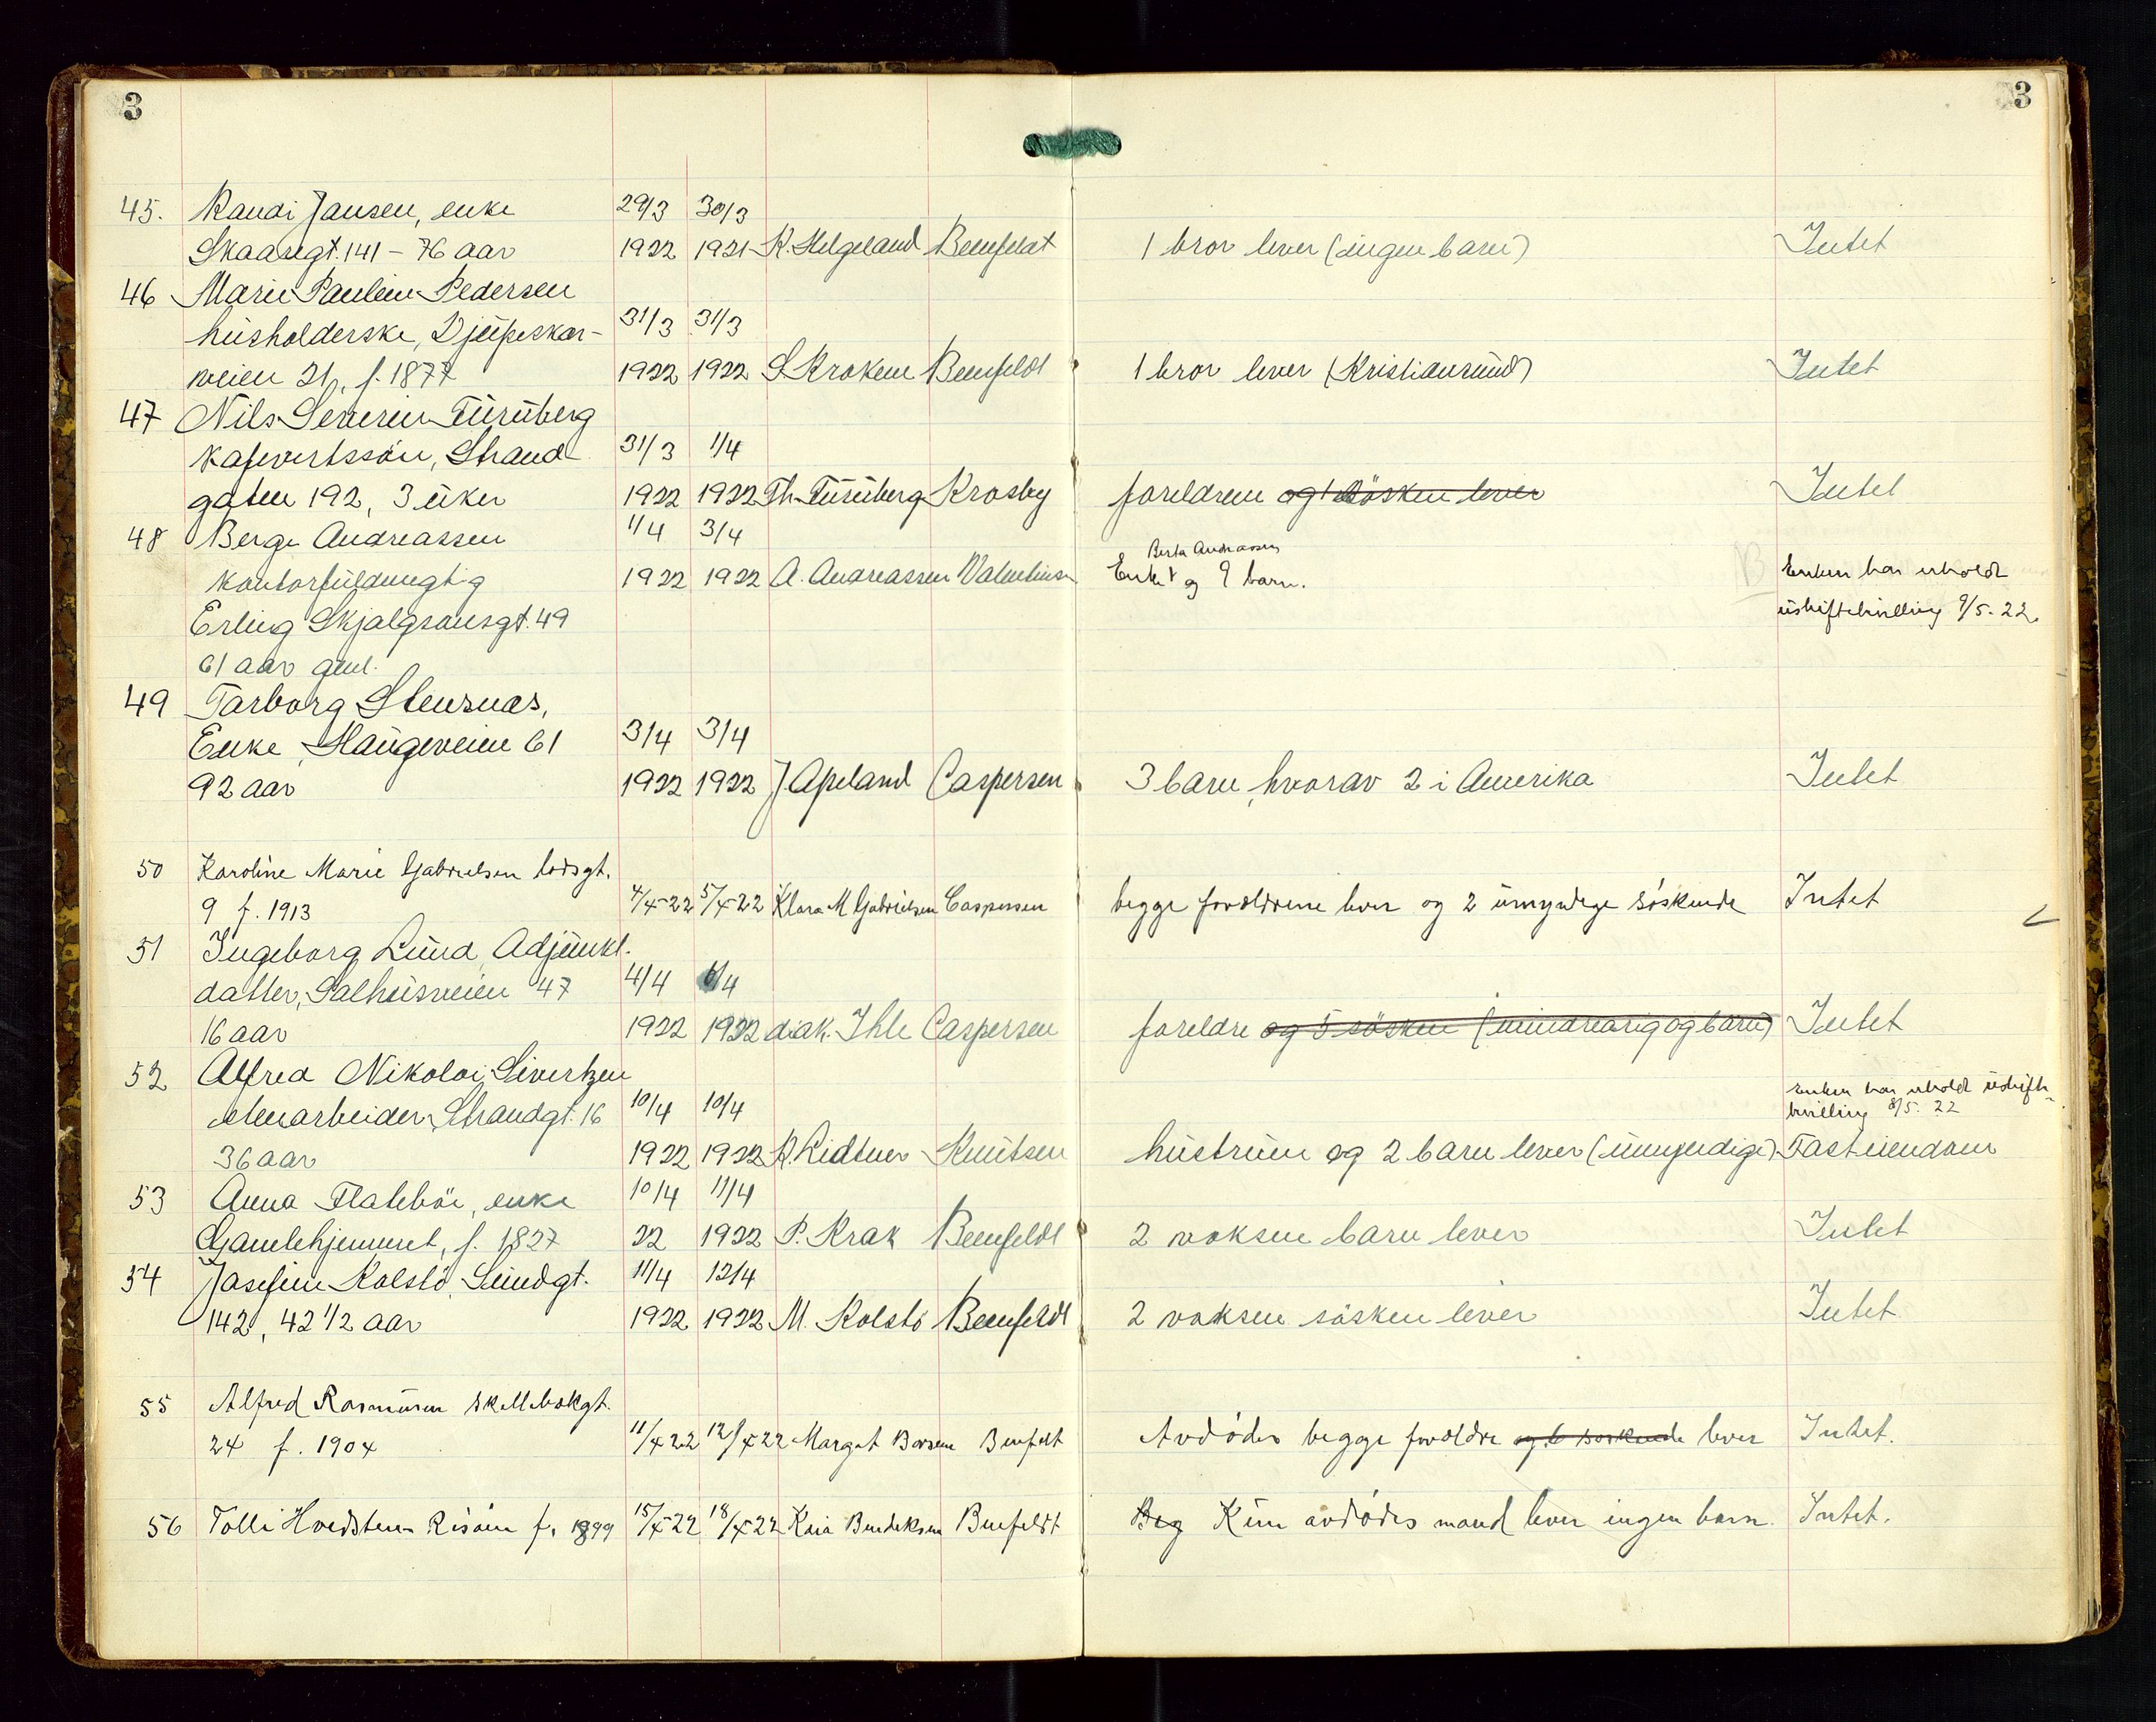 3
3
45. Randi Jansen, enke 29/3 30/3
Skaaregt. 141 - 76 aar 1922 1921 K. Helgeland Beenfeldt 1 bror lever (ingen barn) Intet
46 Marie Pauline Pedersen
husholderske, Djupeskar- 31/3 31/3
veien 21, f. 1877 1922 1922 S Kroken Beenfeldt 1 bror lever (Kristiansund) Intet
47 Nils Severin Turuberg
Kafevertssön, Strand- 31/3 1/4
gaten 192, 3 uker 1922 1922 Th. Turuberg Krosby foreldrene og 1 søsken lever Intet
48 Berge Andreassen 1/4 3/4
Berta Andreassen
kontorfuldmegtig 1922 1922 A. Andreassen Valentinsen Enke og 9 barn. Enken har erholdt
Erling Skjalgsonsgt. 49 uskiftebevilling 9/5-22.
61 aar gml.
49 Tarborg Stensnæs,
Enke, Haugeveien 61 3/4 3/4
92 aar 1922 1922 J. Apeland Caspersen 3 barn, hvorav 2 i Amerika Intet
50 Karoline Marie Gabrielsen losgt.
9 f. 1913 4/4-22 5/4-22 Klara M Gabrielsen Caspersen begge forældrene lever og 2 umyndige søskende Intet
51 Ingeborg Lund, Adjunkt-
datter, Salhusveien 47 4/4 6/4
16 aar 1922 1922 diak. Ihle Caspersen foreldre og 5 søsken (mindreårig og barn) Intet
52 Alfred Nikolai Sivertzen Enken har erholdt uskifte-
stenarbeider, Strandgt. 16 10/4 10/4 bevilling 8/5-22
36 aar 1922 1922 R. Ridtner Knutsen hustruen og 2 barn lever (umyndige) Fast eiendom
53 Anna Flatebö, enke 10/4 11/4
Gamlehjemmet, f. 1827 22 1922 P. Krak Beenfeldt 2 voksne barn lever Intet
54 Josefine Kolstö, Sundgt. 11/4 12/4
142, 42 1/2 aar 1922 1922 M. Kolstö Beenfeldt 2 voksne søsken lever Intet
55 Alfred Rasmussen Skillebekgt.
24 f. 1904 11/4 22 12/4 22 Margit Borsen Benfeldt Avdødes begge forældre og 6 søskende lever Intet.
56 Tolli Hvedsten Risöen f. 1899 15/4-22 18/4-22 Kaia Bendiksen Benfeldt Beg Kun avdødes mand lever ingen barn. Intet.